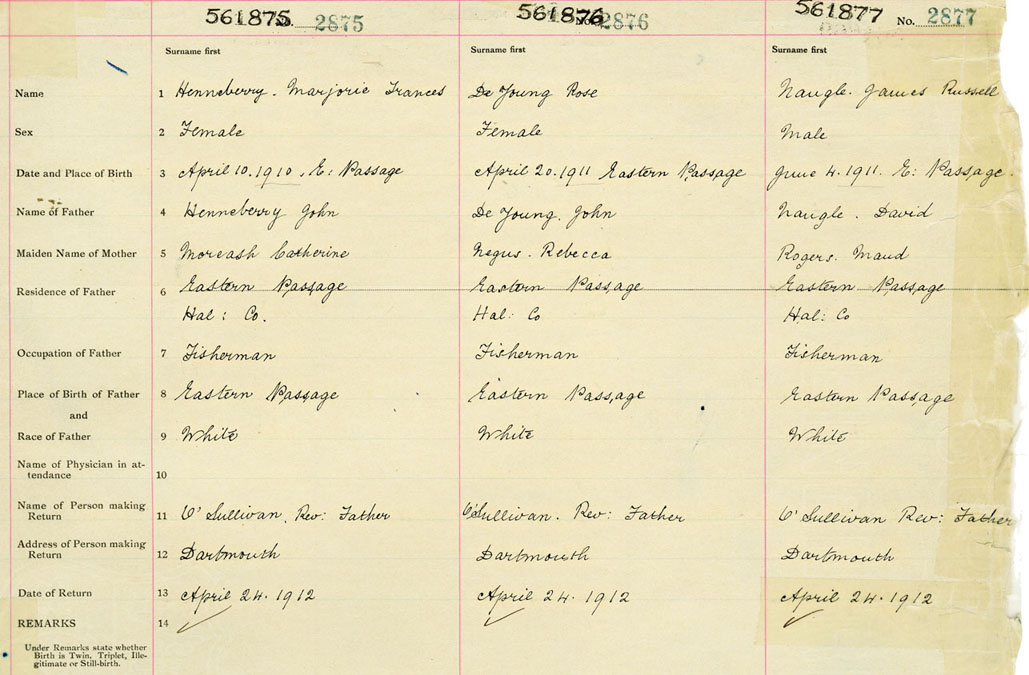 561875 No. 2875 561876 No. 2876 561877 No. 2877
Surname first Surname first Surname first
Name 1 Henneberry. Marjorie Frances De Young Rose Naugle. James Russell
Sex 2 Female Female Male
Date and Place of Birth 3 April 10. 1910. E: Passage April 20. 1911 Eastern Passage June 4. 1911. E: Passage.
Name of Father 4 Henneberry John De Young. John Naugle. David
Maiden Name of Mother 5 Moreash Catherine Negus. Rebecca Rogers. Maud
Residence of Father 6 Eastern Passage Eastern Passage Eastern Passage
Hal: Co. Hal: Co Hal: Co
Occupation of Father 7 Fisherman Fisherman Fisherman
Place of Birth of Father 8 Eastern Passage Eastern Passage Eastern Passage
and
Race of Father 9 White White White
Name of Physician in at-
tendance 10
Name of Person making
Return 11 O'Sullivan. Rev: Father O'Sullivan. Rev: Father O'Sullivan Rev: Father
Address of Person making
Return 12 Dartmouth Dartmouth Dartmouth
Date of Return 13 April 24. 1912 April 24. 1912 April 24. 1912
REMARKS 14
Under Remarks state whether
Birth is Twin, Triplet, Ille-
gitimate or Still-birth.